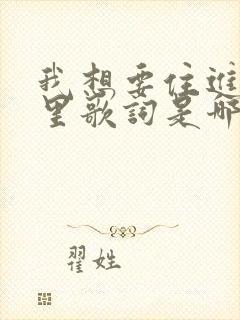 我想要住進
里歌詞是哪
翟姓